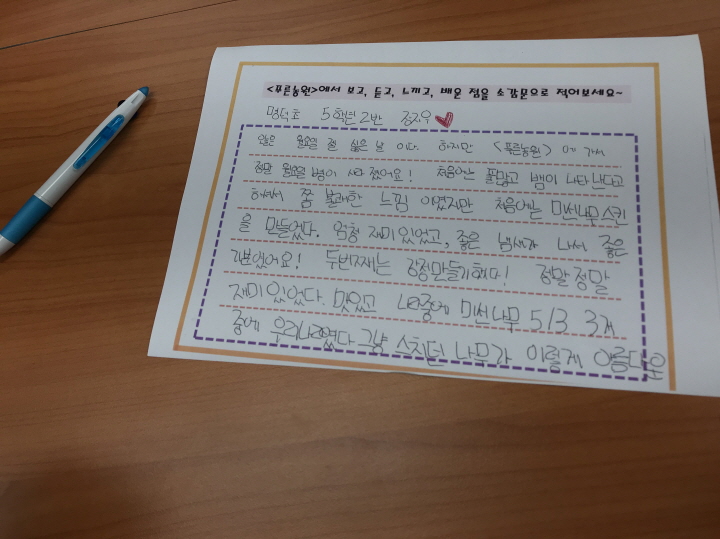 <푸른농원>에서 보고, 듣고, 느끼고, 배운 점을 소감문으로 적어보세요~
명덕초 5학년 2반 정지우
월요일 젤 싫은 날 이다. 하지만 <푸른농원> 에 가서
정말 월요일 병이 사라졌어요! 처음에는 풀많고 뱀이 나타난다고
하셔서 쫌 불쾌한 느낌 이였지만 처음에는 미선나무 스킨
을 만들었다. 엄청 재미있었고, 좋은 냄새가 나서 좋은
기분이었어요! 두번째는 강정만들기했다! 정말 정말
재미있었다. 맛있고 나중에 미선나무 3개
중에 우리나라였다 그냥 스치던 나무가 이렇게 아름다운